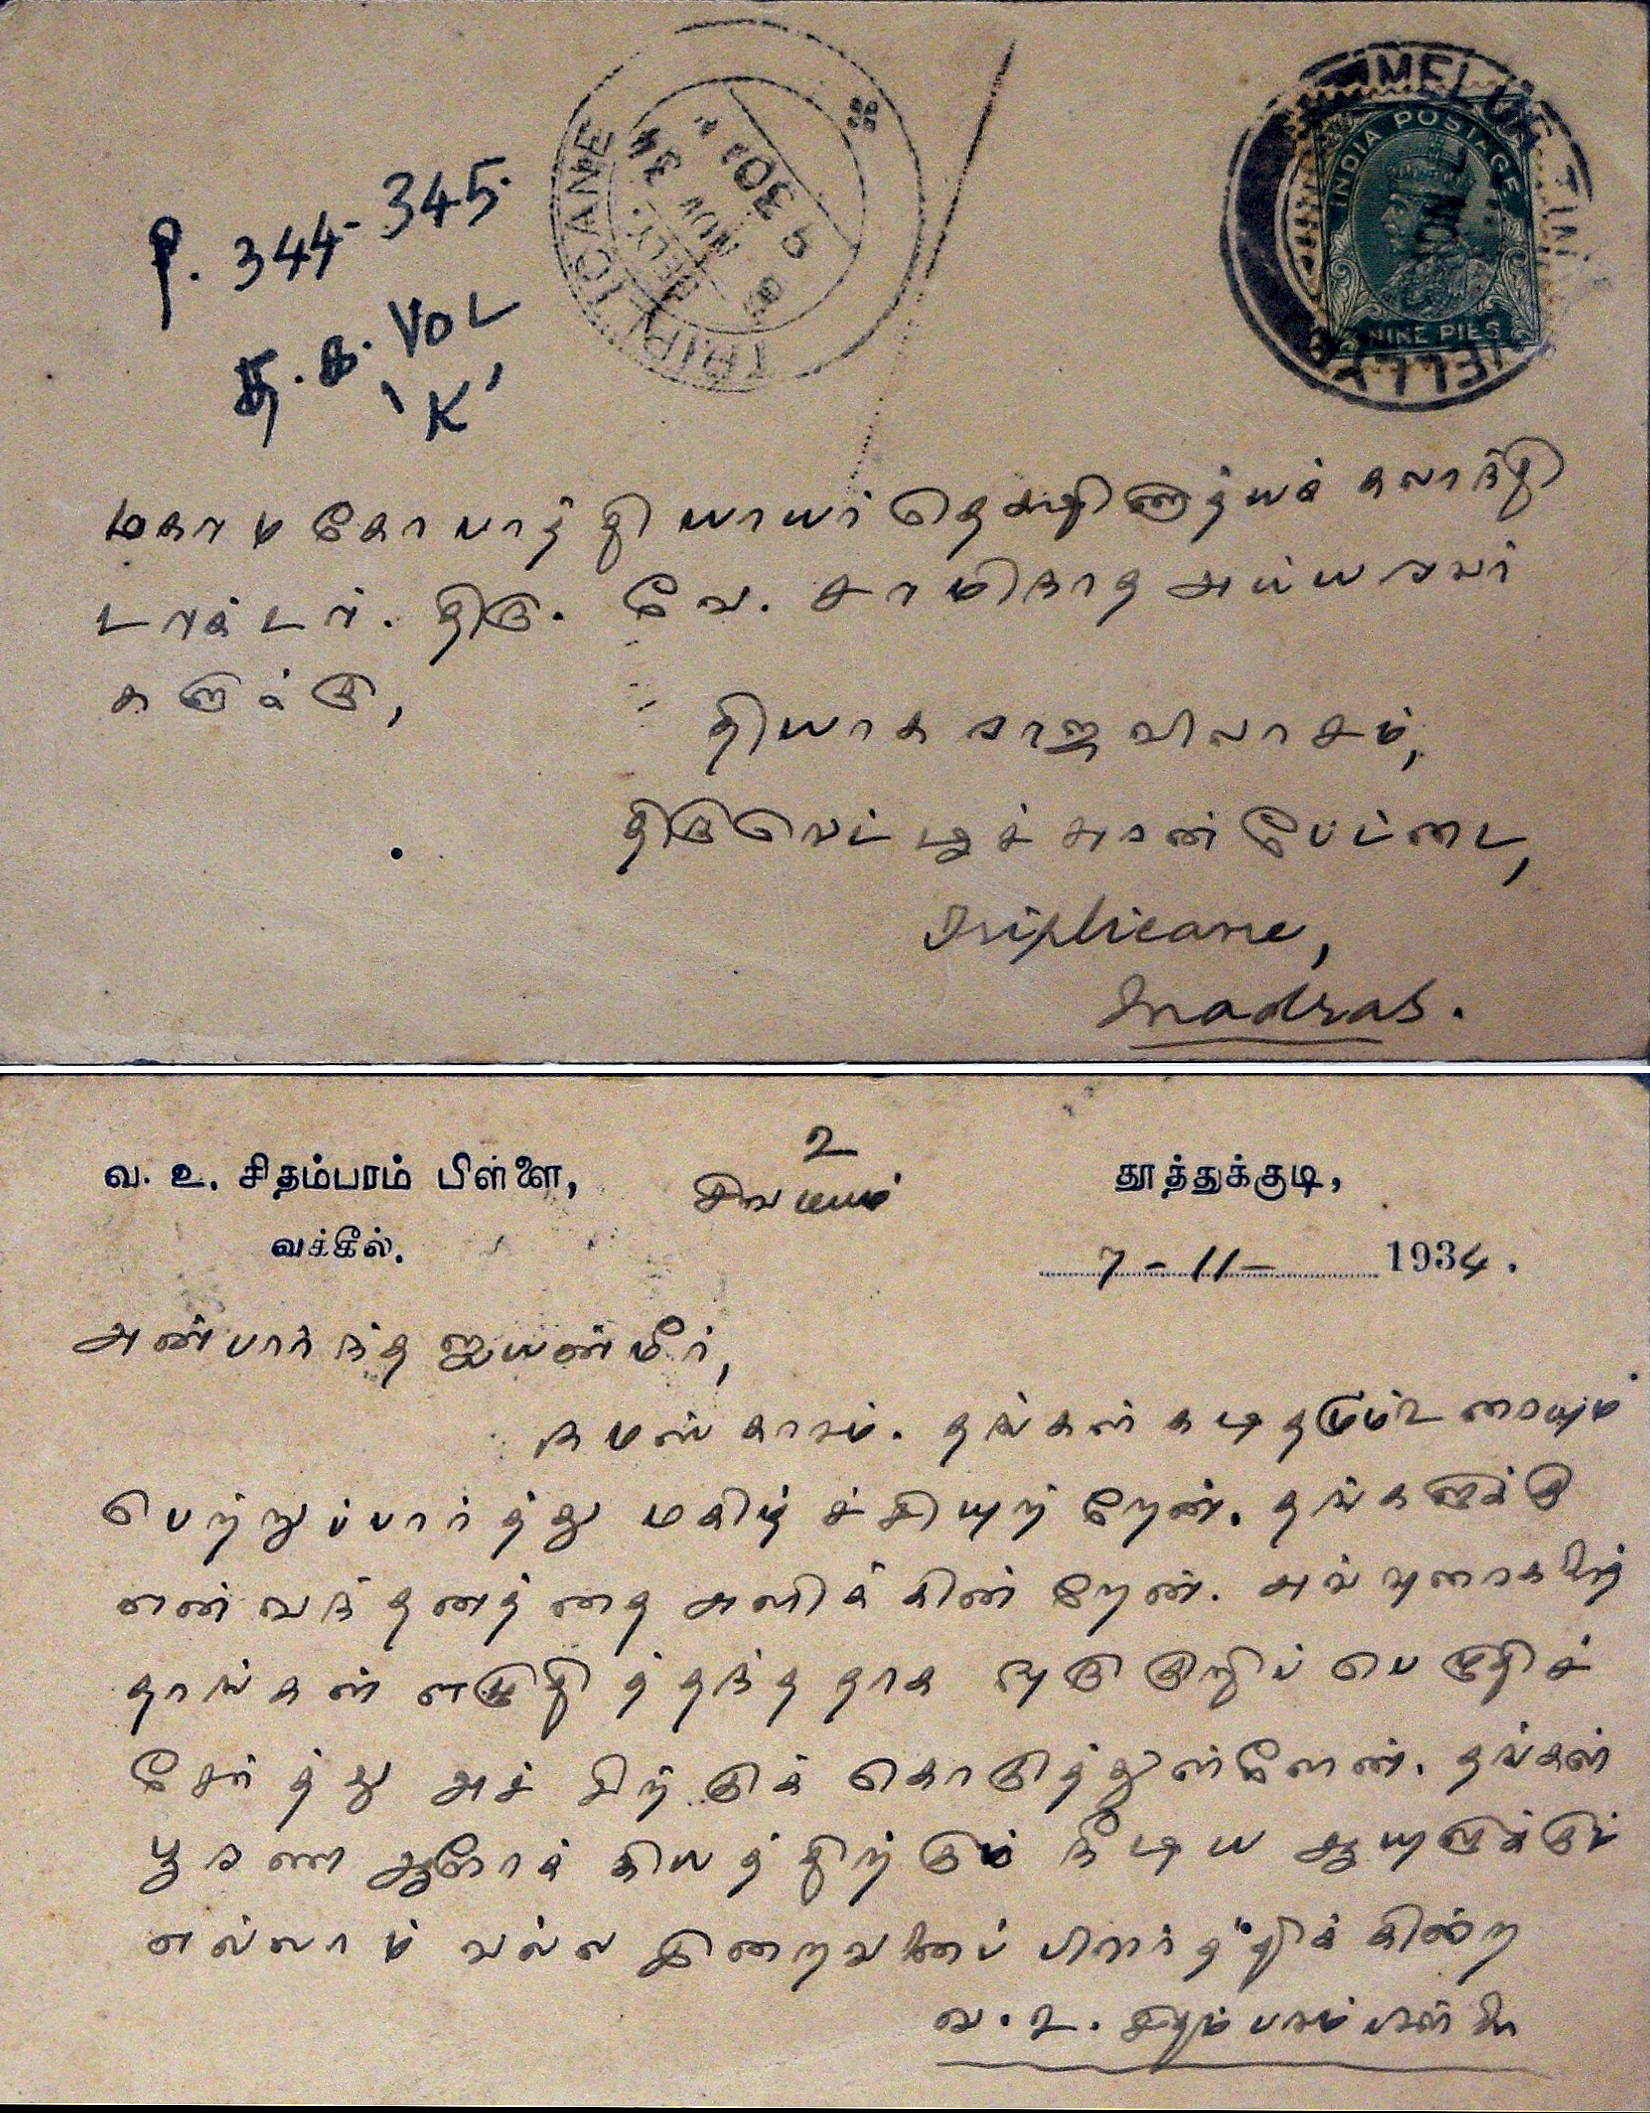 P. 344-345.
VOL
'K'
TRIPLICANE
DELY.
8 NOV 34
9 30
INDIA POSTAGE
NINE PIES
மகாமகோபாத்தியாயர் தெக்ஷிணாத்யக் கலாநிதி
டாக்டர். திரு. வே. சாமிநாத அய்யரவர்
களுக்கு,
தியாகராஜ விலாசம்,
திருவெட்டீச்சுரன் பேட்டை,
Triplicane,
Madras.
வ. உ. சிதம்பரம் பிள்ளை,
உ
சிவமயம்
தூத்துக்குடி,
வக்கீல்.
7-11- 1934.
அன்பார்ந்த ஐயன்மீர்,
நமஸ்காரம். தங்கள் கடிதமும் உரையும்
பெற்றுப்பார்த்து மகிழ்ச்சியுற்றேன். தங்களுக்கு
என் வந்தனத்தை அளிக்கின்றேன். அவ்வுரைகளைத்
தாங்கள் எழுதித்தந்ததாக ஒரு குறிப்பெழுதிச்
சேர்த்து அச்சிற்குக் கொடுத்துள்ளேன். தங்கள்
பூரண ஆரோக்கியத்திற்கும் நீடிய ஆயுளுக்கும்
எல்லாம் வல்ல இறைவனைப் பிரார்த்திக்கின்ற
வ. உ. சிதம்பரம்பிள்ளை